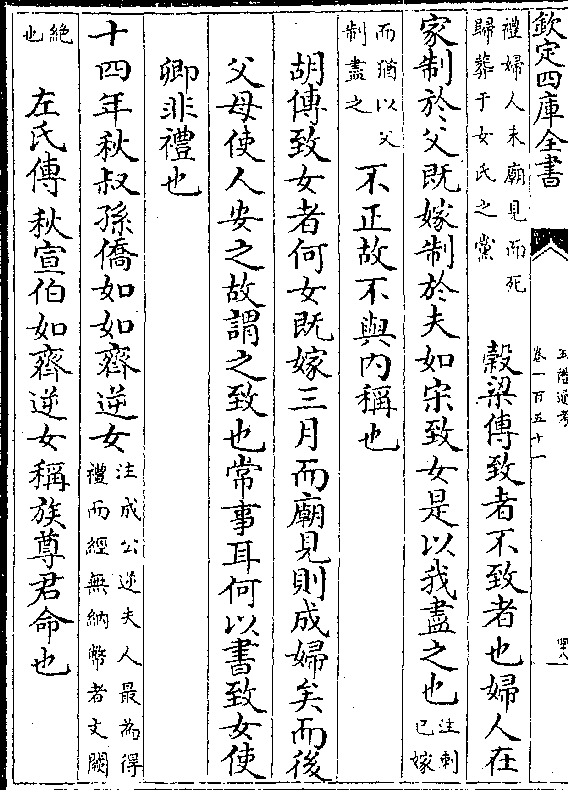 欽定四庫全書
五禮通考
卷一百五十一
四八
禮婦人未廟見而死
歸葬于女氏之黨
穀梁傳致者不致者也婦人在
家制於父既嫁制於夫如宋致女是以我盡之也
注刺
已嫁
而猶以父
制盡之
不正故不與內稱也
胡傳致女者何女既嫁三月而廟見則成婦矣而後
父母使人安之故謂之致也常事耳何以書致女使
卿非禮也
十四年秋叔孫僑如如齊逆女
注成公逆夫人最為得
禮而經無納幣者文闕
絶
也
左氏傳秋宣伯如齊逆女稱族尊君命也